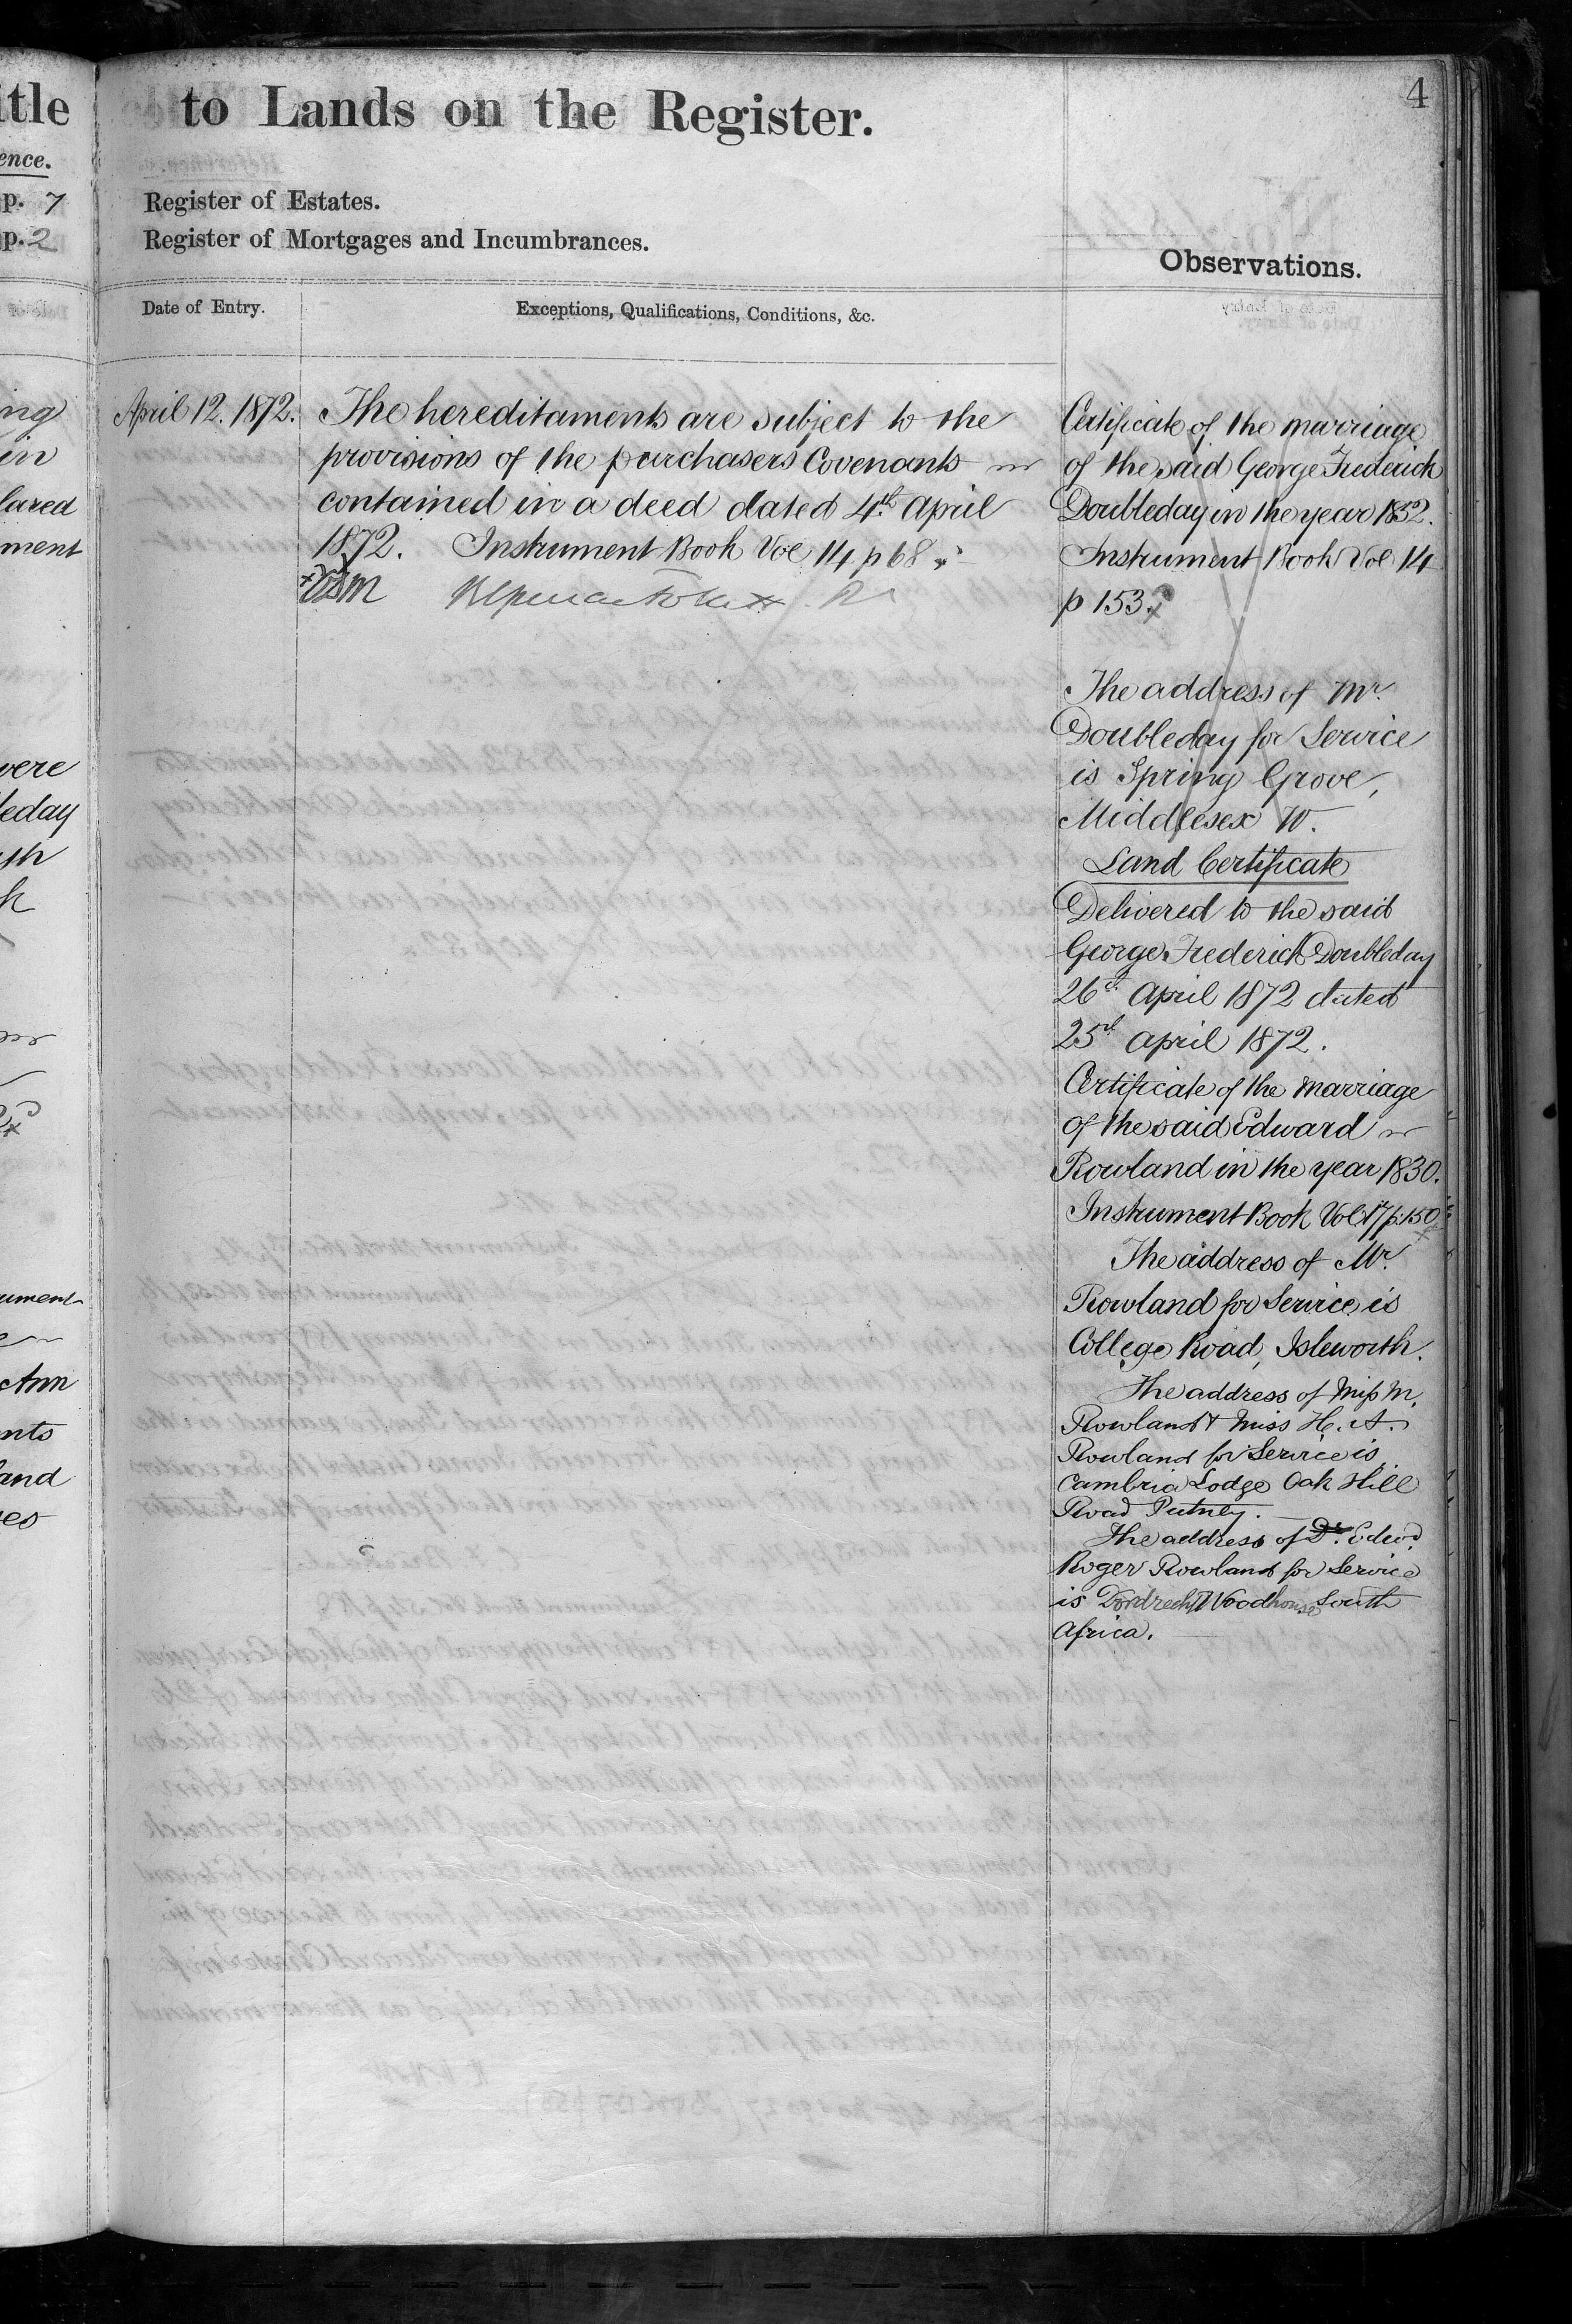 itle
ence.
p. 7
p. 2
ing
in
lared
ment
were
leday
ument
Ann
nts
and
to Lands on the Register.
4
Register of Estates.
Register of Mortgages and Incumbrances.
Observations.
Date of Entry.
Exceptions, Qualifications, Conditions, &c.
April 12. 1872.
The hereditaments are subject to the
provisions of the purchasers Covenants
contained in a deed dated 4th April
1872. Instrument Book Vol 14 p 68
Certificate of the marriage
of the said George Frederick
Doubleday in the year 1852.
Instrument Book Vol 14
p 153.
The address of Mr.
Doubleday for Service
is Spring Grove,
Middlesex W.
Land Certificate
Delivered to the said
George Frederick Doubleday
26th April 1872 dated
25th April 1872.
Certificate of the marriage
of the said Edward
Rowland in the year 1830.
Instrument Book Vol 17 p. 150
The address of Mr.
Rowland for Service is
College Road, Isleworth.
The address of Miss M.
Rowland & Miss H. A.
Rowland for Service is
Cambria Lodge Oak Hill
Road Putney.
The address of Dr. Edwd.
Roger Rowland for Service
is Dordrecht Woodhouse South
Africa.